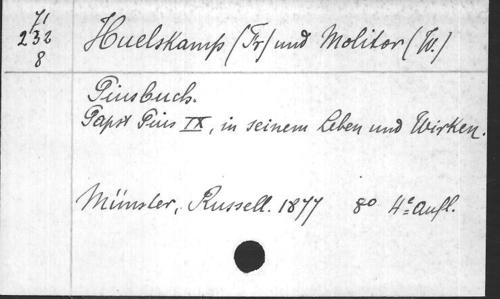 71
232
8
Huelskamp (Fr) und Molitor (W.)
Piusbuch.
Papst Pius IX, in seinem Leben und Wirken.
Münster, Russell. 1877 8o 4e Aufl.